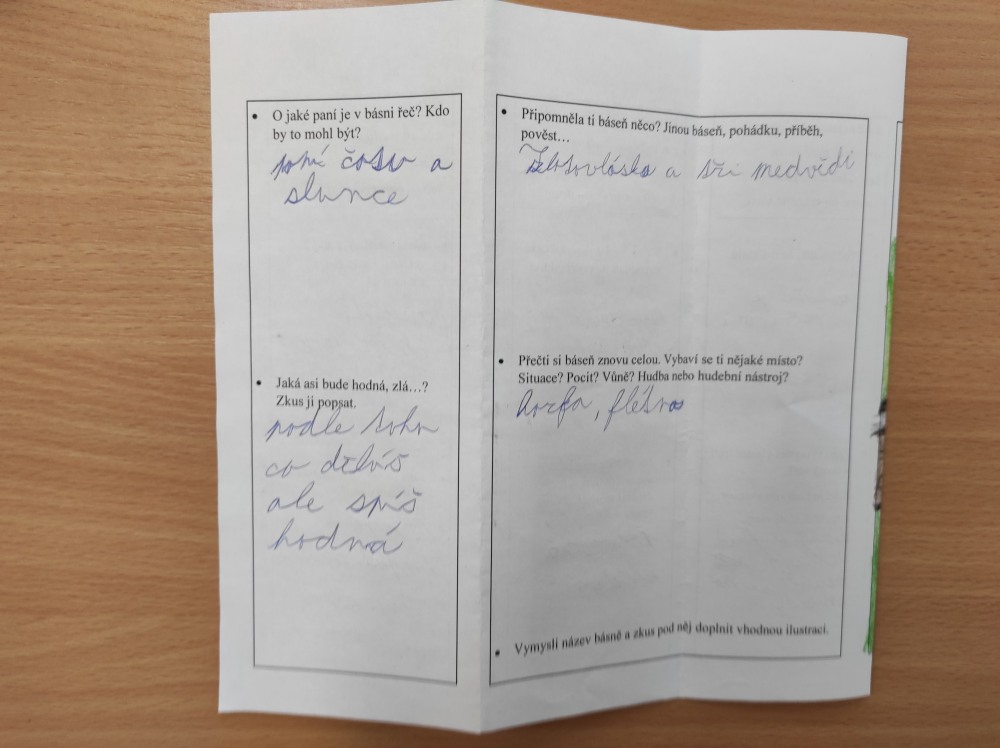 • O jaké paní je v básni řeč? Kdo
by to mohl být?
paní času a
slunce
• Jaká asi bude hodná, zlá…?
Zkus ji popsat.
podle toho
co děláš
ale spíš
hodná
• Připomněla ti báseň něco? Jinou báseň, pohádku, příběh,
pověst…
Zlatovláska a tři medvědi
• Přečti si báseň znovu celou. Vybaví se ti nějaké místo?
Situace? Pocit? Vůně? Hudba nebo hudební nástroj?
harfa, flétna
• Vymysli název básně a zkus pod něj doplnit vhodnou ilustraci.